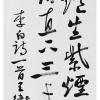 爐生紫煙
直下三千
李白詩一首